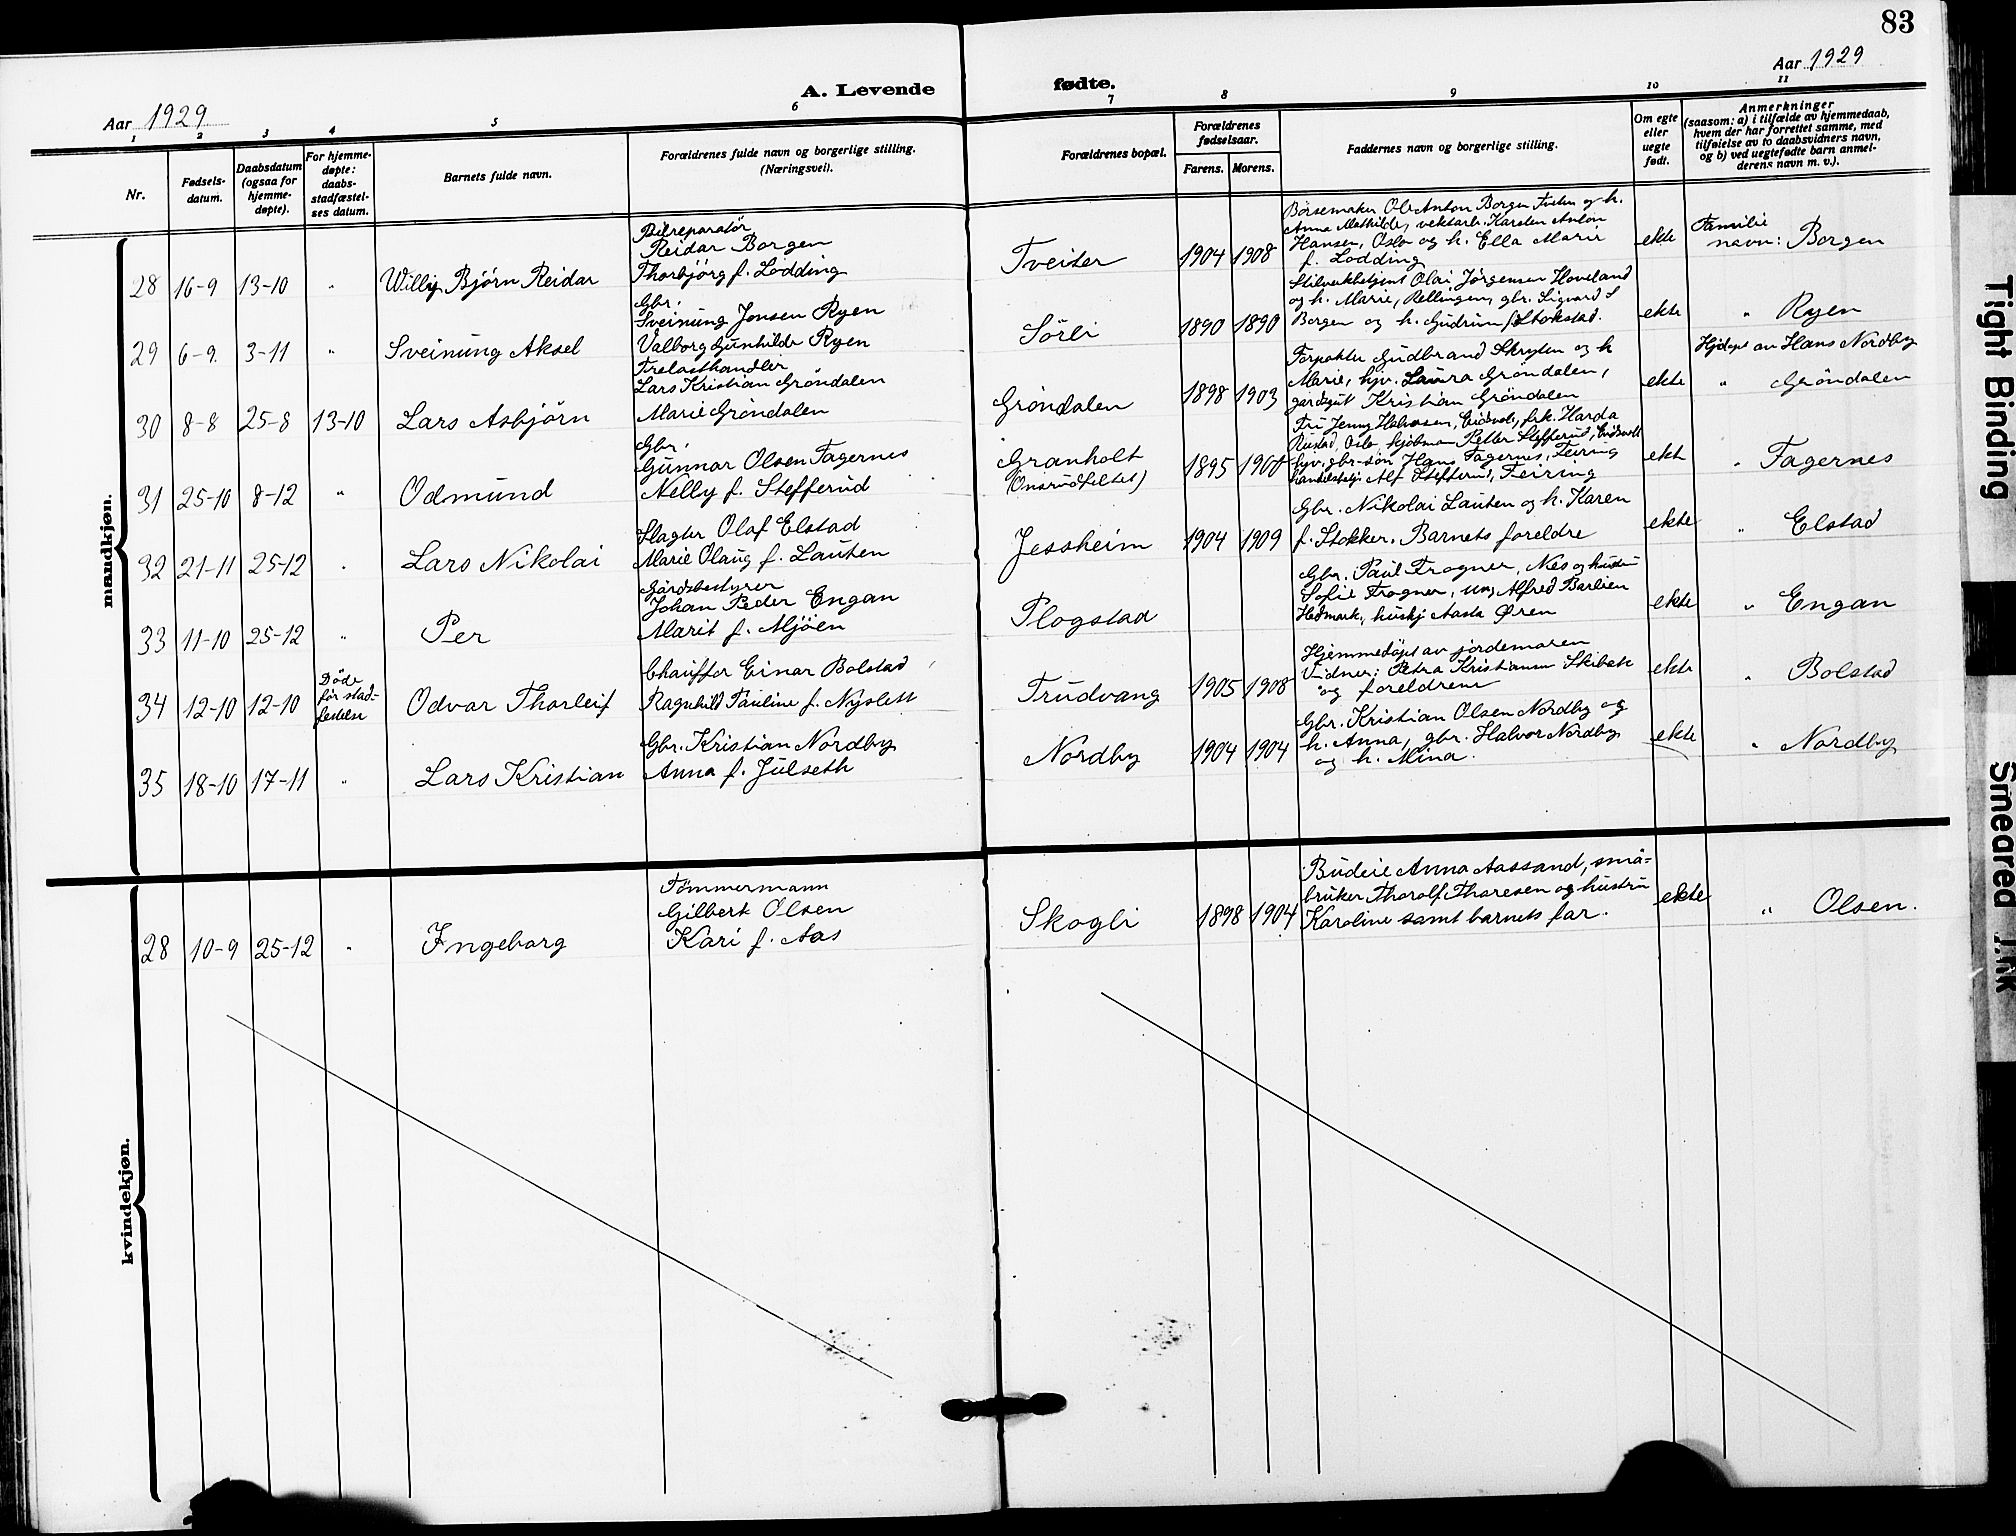 83
Aar 1929
Aar 1929
A. Levende fødte.
1 2 3 4 5 6 7 8 9 10 11
Nr.
Fødsels-
datum.
Daabsdatum
(ogsaa for
hjemme-
døpte).
For hjemme-
døpte:
daabs-
stadfæstel-
ses datum.
Barnets fulde navn.
Forældrenes fulde navn og borgerlige stilling.
(Næringsvei).
Forældrenes bopæl.
Forældrenes
fødselsaar.
Farens. Morens.
Faddernes navn og borgerlige stilling.
Om egte
eller
uegte
født.
Anmerkninger
(saasom: a) i tilfælde av hjemmedaab,
hvem der har forrettet samme, med
tilføielse av to daabsvidners navn,
og b) ved uegtefødte barn anmel-
derens navn m. v.).
mandkjøn.
28 16-9 13-10 " Willy Bjørn Reidar
Bilreparatør
Reidar Borgen
Thorbjörg f. Lodding
Tveiter 1904 1908
Börsemaker Ole Anton Borgen Tveten og h.
Anna Mathilde, vektarb. Karsten Anton
Hansen, Oslo og h. Ella Marie
f. Lodding
ekte
Familie
navn: Borgen
29 6-9. 3-11 " Sveinung Aksel
Gbr.
Sveinung Jonsen Ryen
Valborg Gunhilde Ryen
Sörli 1890 1890
Olai Jørgensen Hoveland
og h. Marie, Rellingen, gbr. Sigvard S
Borgen og h. Gudrun f. Stokstad.
ekte " Ryen
30 8-8 25-8 13-10 Lars Asbjörn
Trelasthandler
Lars Kristian Gröndalen
Marie Gröndalen
Gröndalen 1898 1903
Forpakter Gudbrand Skryten og h
Marie, hjv. Laura Gröndalen,
gardsgut Kristian Gröndalen
ekte
Hjdøpt av Hans Nordby
" Gröndalen
31 25-10 8-12 " Odmund
Gbr.
Gunnar Olsen Fagernes
Nelly f. Stefferud
Granholt
(Onsrudfeltet)
1895 1900
Fru Jenny Halvorsen, Eidsvoll, frk. Harda
Rustad, Oslo, kjøbmann Petter Stefferud, Eidsvoll
hjv. gbr-søn Hans Fagernes, Feiring
Alf Stefferud, Feiring
ekte " Fagernes
32 21-11 25-12 " Lars Nikolai
Slagter Olaf Elstad
Marie Olaug f. Lauten
Jessheim 1904 1909
Gbr. Nikolai Lauten og h. Karen
f. Stokker. Barnets foreldre
ekte " Elstad
33 11-10 25-12 " Per
Gårdsbestyrer
Johan Peder Engan
Marit f. Mjöen
Plogstad
Gbr. Paul Frogner, Nes og hustru
Sofie Frogner, um Alfred Barlien
Hedmark, huskj Aasta Øren
ekte " Engan
34 12-10 12-10
Døde
før stad-
festelse
Odvar Thorleif
Chauffør Einar Bolstad
Ragnhild Pauline f. Nyslett
Trudvang 1905 1908
Hjemmedøpt av jordemoren
Vidner: Petra Kristiansen Skibek
og foreldrene
ekte " Bolstad
35 18-10 17-11 " Lars Kristian
Gbr. Kristian Nordby
Anna f. Julseth
Nordby 1904 1904
Gbr. Kristian Olsen Nordby og
h. Anna, gbr. Halvor Nordby
og h. Mina.
ekte " Nordby
kvindekjøn.
28 10-9 25-12 " Ingeborg
Tømmermann
Gilbert Olsen
Kari f. Aas
Skogli 1898 1904
Budeie Anna Aassand, små-
bruker Thorolf Thoresen og hustru
Karoline samt barnets far.
ekte " Olsen.
Tight Binding
Smeared Ink